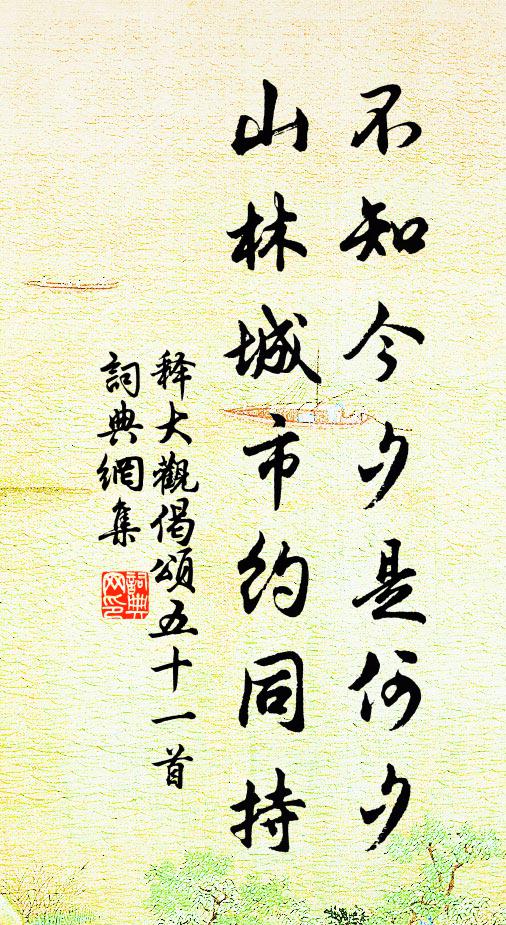 不知今夕是何夕
山林城市約同持
释大觀偈頌五十一首
詞典網集
詞典网印